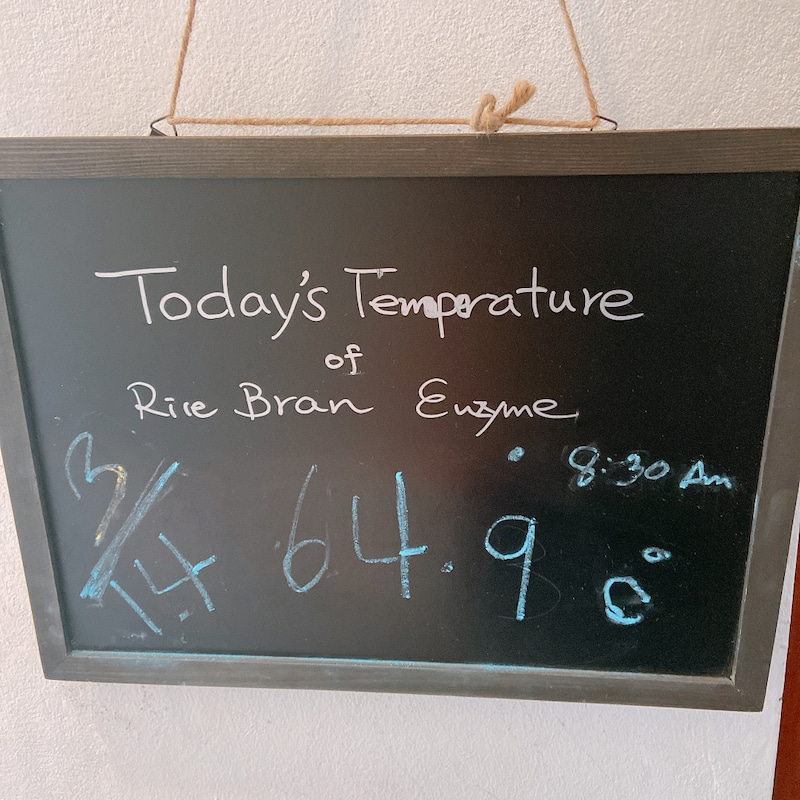 Today's Temperature
of
Rice Bran Enzyme
8:30 Am
3/14 64.9 C°